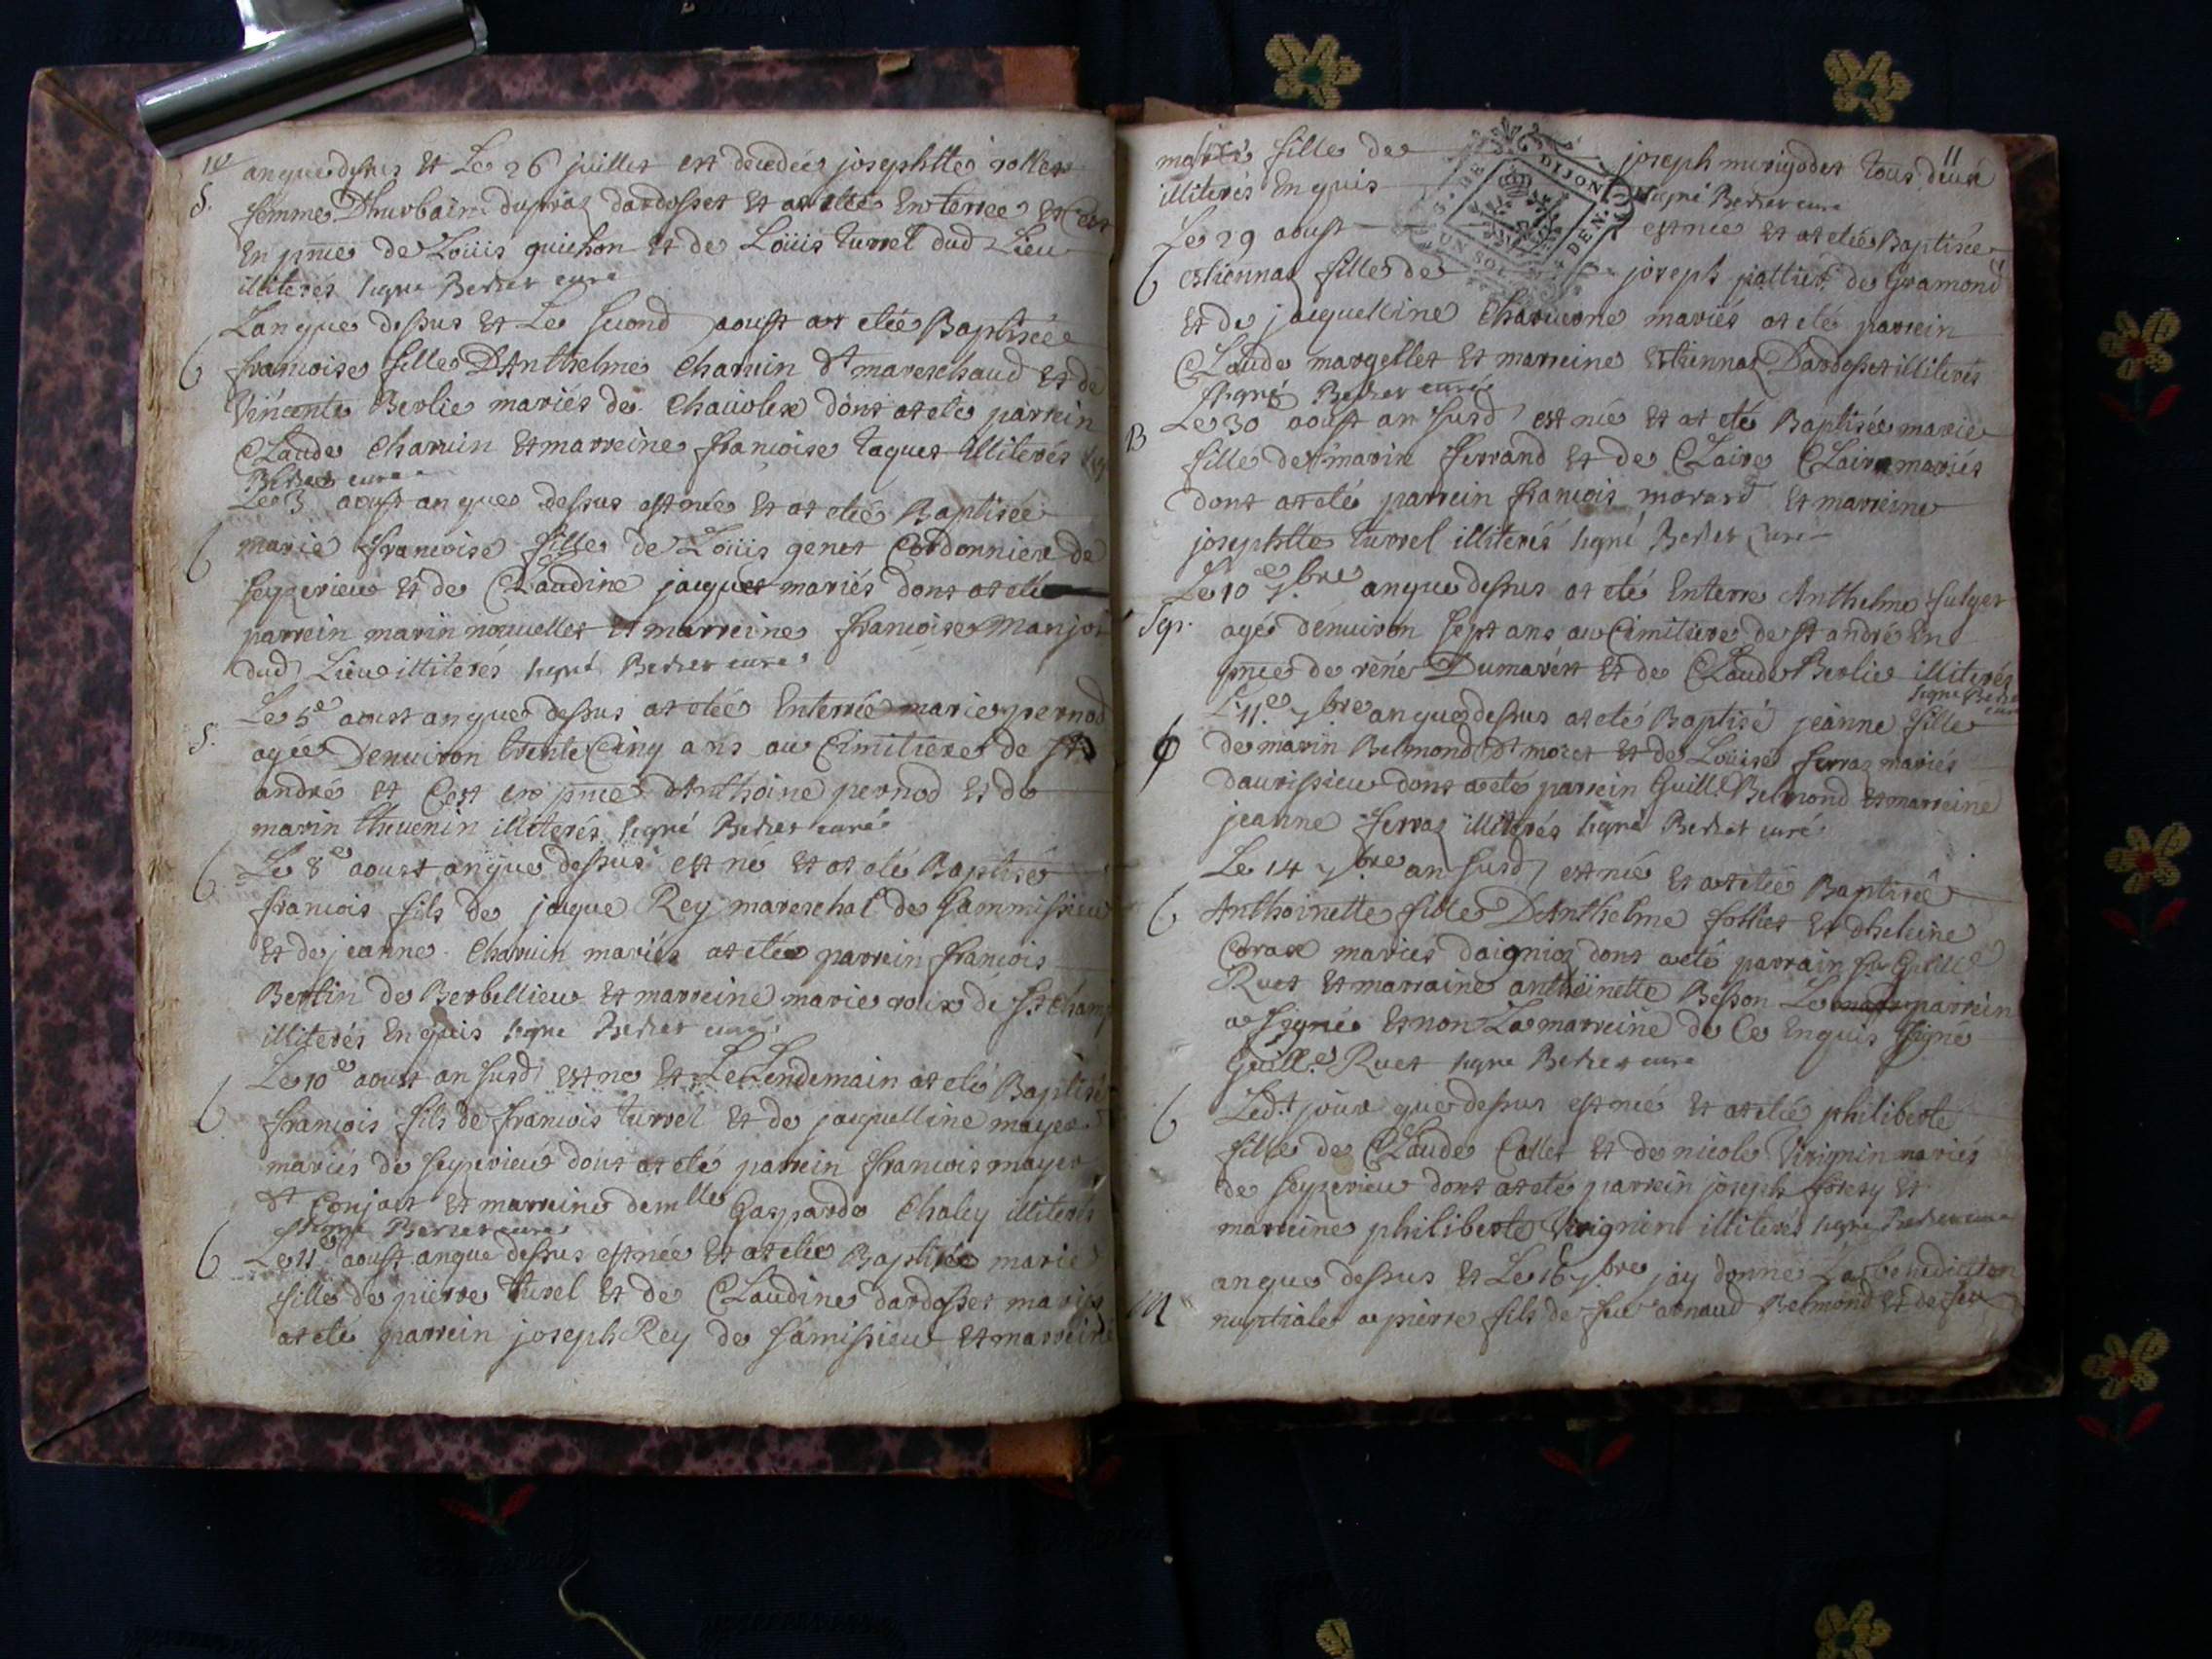 10
an que dessus et Le 26 juillet est decedée josephtte rollet
S.
femme Dhurbain dupraz dardosset et at eté Enterree et Cest
En pnce de Loüis guichon et de Loüis turrel dud Lieu
illiterés signé Berlier curé
Lan que dessus et Le second aoust at etée Baptisée
francoise fille DAnthelme Charuin dt mareschaud et de
Vincente Berlie mariés de dont at eté parrein
Claude Charuin et marreine francoise taquet illiterés
curé
Le 3 aoust an que dessus est née et at etée Baptisée
marie francoise fille de Loüis genet Cordonnier de
Seyzerieu et de Claudine jacquet mariés dont at eté
parrein marin nouuellet et marreine francoise manjot
dud Lieu illiterés signé curé
S.
Le 5e aoust an que dessus at etée Enterrée marie pernod
agée Denuiron trente Cinq ans au Cimitiere de St
andré et Cest en pnce dAnthoine pernod et de
marin theuenin illiterés signé curé
Le 8e aoust an que dessus est né et at eté Baptisé
francois fils de jaque Rey mareschal de Sammissieu
et de jeanne Charuin mariés at eté parrein francois
Bertin de Berbellieu et marreine marie roux de St Champ
illiterés Enquis signé curé
Le 10e aoust an susd est né et Le Lendemain at eté Baptisé
francois fils de francois turrel et de jacquelline mayer
mariés de Seyzerieu dont at eté parrein francois mayer
dt Conjat et marreine demlle Gasparde Chaley illiterés
signé curé
Le 11e aoust an que dessus est née et at etée Baptisée marie
fille de pierre turel et de Claudine dardosset mariés
at eté parrein joseph Rey de Samissieu et marreine
11
marie fille de joseph merigodet tous deux
illiterés Enquis signé curé
G. DE DIJON
UN SOL
DEN.
Le 29 aoust est née et at etée Baptisée
estiennaz fille de joseph pattiet de Gramond
et de jacquelline mariés at eté parrein
Claude margellet et marreine Etiennaz Dardosset illiterés
signé curé
B
Le 30 aoust an susd est née et at eté Baptisée marie
fille de marin ferrand et de Claire Clair mariés
dont at eté parrein francois morard et marreine
josephtte turrel illiterés signé curé
Le 10e 7.bre an que dessus at eté Enterré Anthelme
Sep.
agé denuiron sept ans au Cimitiere de st andré En
pnce de rené Dumarest et de Claude Berlie illiterés
signé
L'11.e 7bre an que dessus at eté Baptisé jeanne fille
de marin Belmond dt moret et de Loüise ferraz mariés
daurissieu dont at eté parrein Guill.e Belmond et marreine
jeanne ferraz illiterés signé curé
Le 14 7bre an susd est née et at etée Baptisée
Anthoinette fille DAnthelme folliet et dheleine
Corax mariés daignoz dont a eté parrain sr Guille
Ruet et marraine anthoinette Besson Le parrein
a signé et non La marreine de Ce Enquis signé
Guill.e Ruet signé curé
Led.t jour que dessus est née et at etée philiberte
fille de Claude Collet et de nicole Virignin mariés
de Seyzerieu dont at eté parrein joseph et
marreine philiberte Virignin illiterés signé curé
an que dessus et Le 16 7bre jay donné La benediction
M
nuptiale a pierre fils de feu arnaud Belmond et de feu